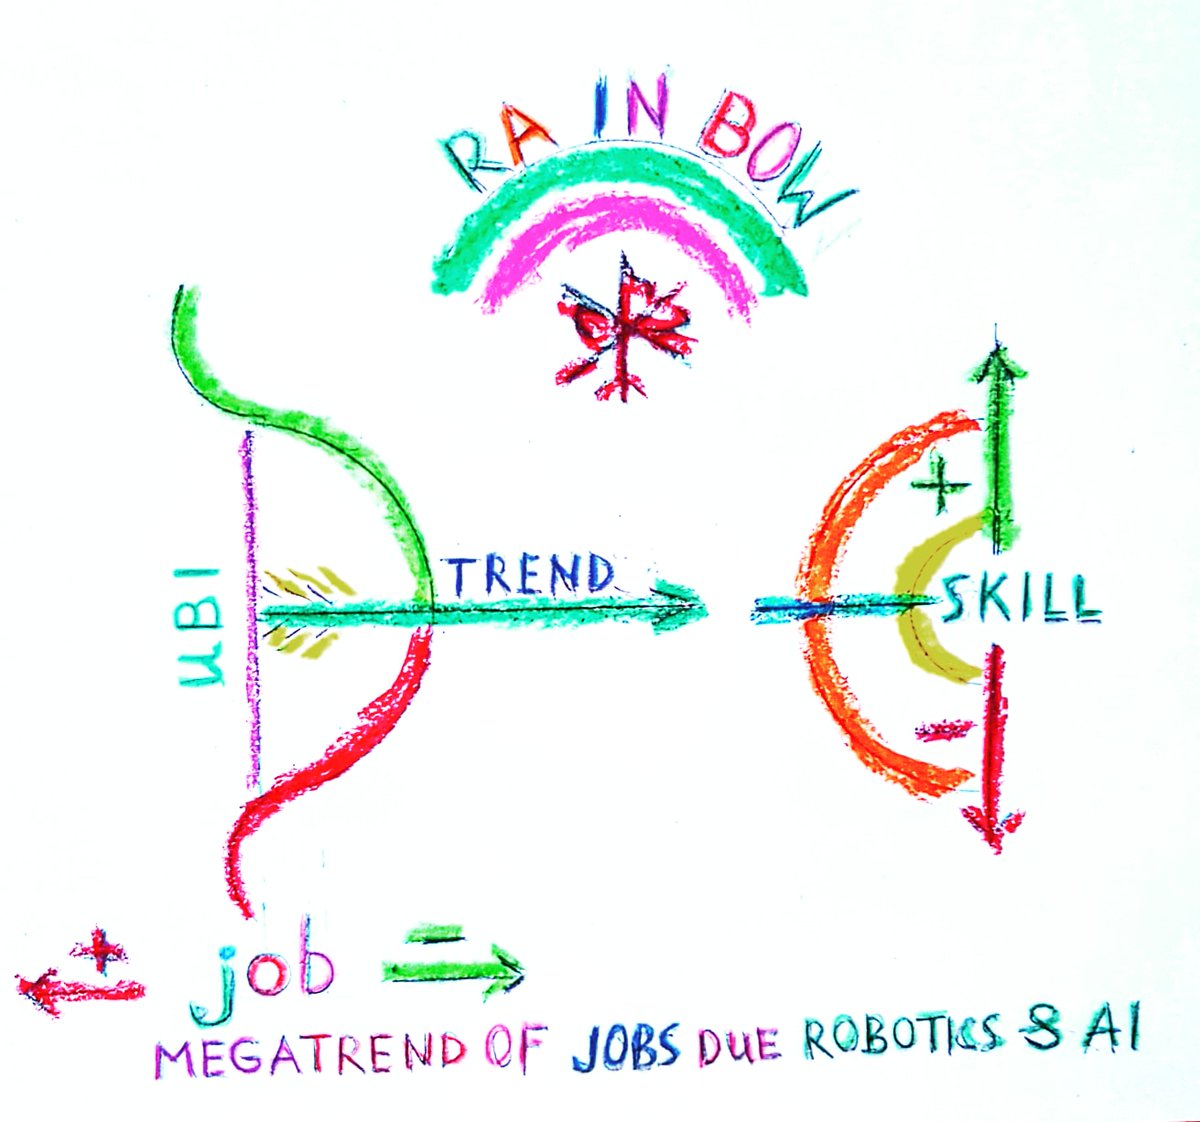 RAINBOW
UBI
TREND
+
SKILL
-
+ job -
MEGATREND OF JOBS DUE ROBOTICS & AI